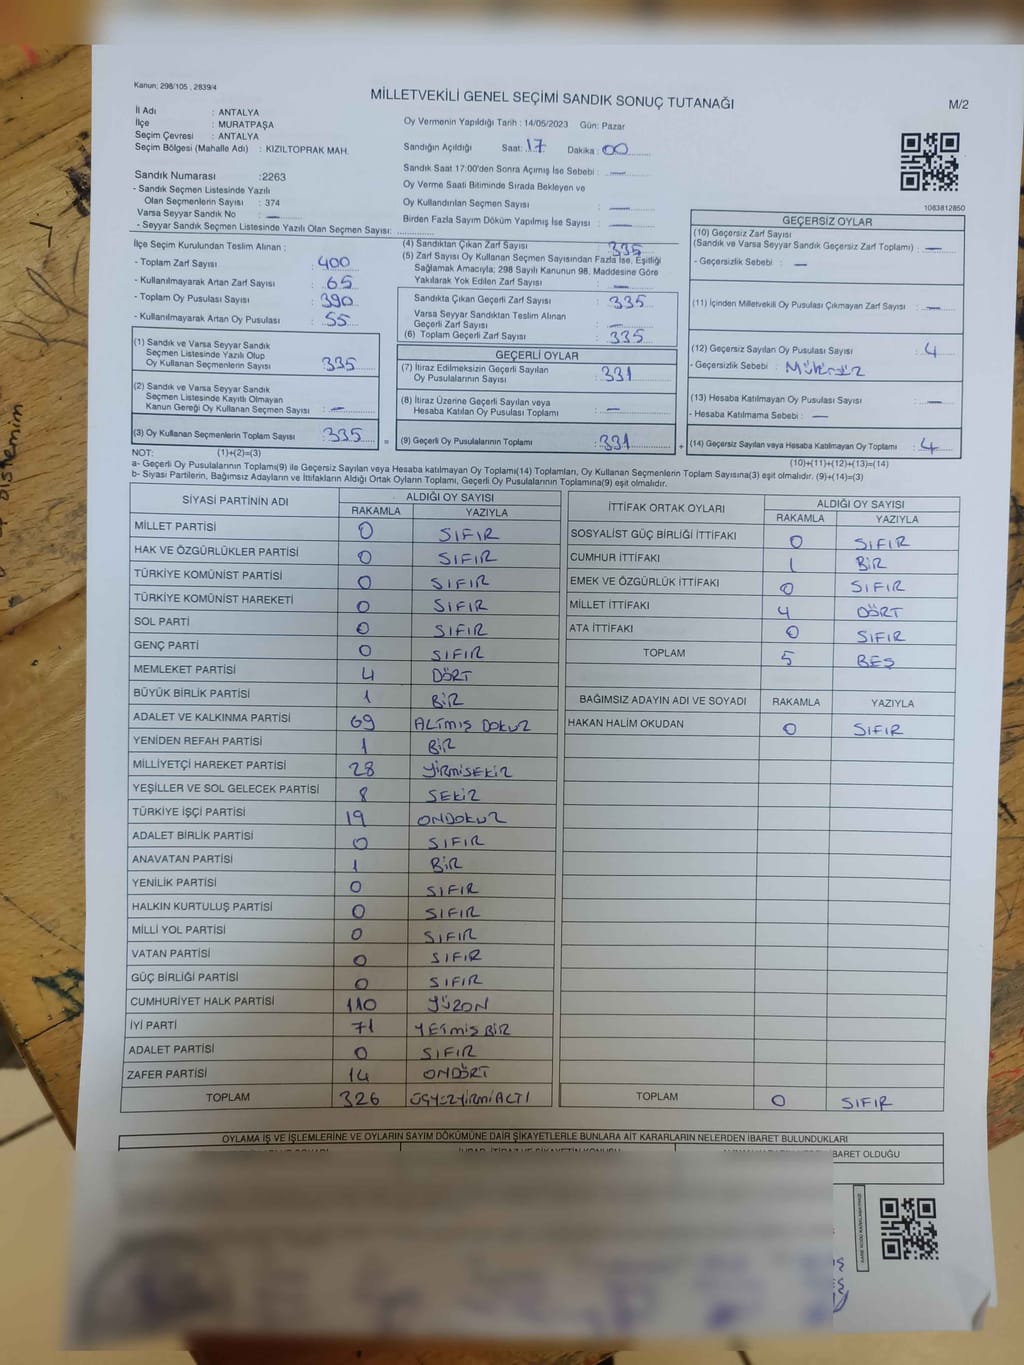 Kanun: 298/105 , 2839/4
MİLLETVEKİLİ GENEL SEÇİMİ SANDIK SONUÇ TUTANAĞI
M/2
İl Adı : ANTALYA
İlçe : MURATPAŞA
Seçim Çevresi : ANTALYA
Seçim Bölgesi (Mahalle Adı) : KIZILTOPRAK MAH.
Oy Vermenin Yapıldığı Tarih : 14/05/2023 Gün: Pazar
Sandığın Açıldığı Saat: 17 Dakika : 00
Sandık Saat 17:00'den Sonra Açımış İse Sebebi : —
Oy Verme Saati Bitiminde Sırada Bekleyen ve
Oy Kullandırılan Seçmen Sayısı : —
Birden Fazla Sayım Döküm Yapılmış İse Sayısı : —
1083812850
Sandık Numarası :2263
- Sandık Seçmen Listesinde Yazılı
Olan Seçmenlerin Sayısı : 374
Varsa Seyyar Sandık No : —
- Seyyar Sandık Seçmen Listesinde Yazılı Olan Seçmen Sayısı:
İlçe Seçim Kurulundan Teslim Alınan :
- Toplam Zarf Sayısı : 400
- Kullanılmayarak Artan Zarf Sayısı : 65
- Toplam Oy Pusulası Sayısı : 390
- Kullanılmayarak Artan Oy Pusulası : 55
(1) Sandık ve Varsa Seyyar Sandık
Seçmen Listesinde Yazılı Olup
Oy Kullanan Seçmenlerin Sayısı : 335
(2) Sandık ve Varsa Seyyar Sandık
Seçmen Listesinde Kayıtlı Olmayan
Kanun Gereği Oy Kullanan Seçmen Sayısı : —
(3) Oy Kullanan Seçmenlerin Toplam Sayısı : 335
(4) Sandıktan Çıkan Zarf Sayısı : 335
(5) Zarf Sayısı Oy Kullanan Seçmen Sayısından Fazla İse, Eşitliği
Sağlamak Amacıyla; 298 Sayılı Kanunun 98. Maddesine Göre
Yakılarak Yok Edilen Zarf Sayısı : —
Sandıkta Çıkan Geçerli Zarf Sayısı : 335
Varsa Seyyar Sandıktan Teslim Alınan
Geçerli Zarf Sayısı : —
(6) Toplam Geçerli Zarf Sayısı : 335
GEÇERLİ OYLAR
(7) İtiraz Edilmeksizin Geçerli Sayılan
Oy Pusulalarının Sayısı : 331
(8) İtiraz Üzerine Geçerli Sayılan veya
Hesaba Katılan Oy Pusulası Toplamı : —
=
(9) Geçerli Oy Pusulalarının Toplamı : 331
+
GEÇERSİZ OYLAR
(10) Geçersiz Zarf Sayısı
(Sandık ve Varsa Seyyar Sandık Geçersiz Zarf Toplamı) : —
- Geçersizlik Sebebi : —
(11) İçinden Milletvekili Oy Pusulası Çıkmayan Zarf Sayısı : —
(12) Geçersiz Sayılan Oy Pusulası Sayısı : 4
- Geçersizlik Sebebi :
(13) Hesaba Katılmayan Oy Pusulası Sayısı : —
- Hesaba Katılmama Sebebi : —
(14) Geçersiz Sayılan veya Hesaba Katılmayan Oy Toplamı : 4
NOT: (1)+(2)=(3)
(10)+(11)+(12)+(13)=(14)
a- Geçerli Oy Pusulalarının Toplamı(9) ile Geçersiz Sayılan veya Hesaba katılmayan Oy Toplamı(14) Toplamları, Oy Kullanan Seçmenlerin Toplam Sayısına(3) eşit olmalıdır. (9)+(14)=(3)
b- Siyasi Partilerin, Bağımsız Adayların ve İttifakların Aldığı Ortak Oyların Toplamı, Geçerli Oy Pusulalarının Toplamına(9) eşit olmalıdır.
SİYASİ PARTİNİN ADI ALDIĞI OY SAYISI
RAKAMLA YAZIYLA
MİLLET PARTİSİ 0 SIFIR
HAK VE ÖZGÜRLÜKLER PARTİSİ 0 SIFIR
TÜRKİYE KOMÜNİST PARTİSİ 0 SIFIR
TÜRKİYE KOMÜNİST HAREKETİ 0 SIFIR
SOL PARTİ 0 SIFIR
GENÇ PARTİ 0 SIFIR
MEMLEKET PARTİSİ 4 DÖRT
BÜYÜK BİRLİK PARTİSİ 1 BİR
ADALET VE KALKINMA PARTİSİ 69 ALTMIŞ DOKUZ
YENİDEN REFAH PARTİSİ 1 BİR
MİLLİYETÇİ HAREKET PARTİSİ 28 YİRMİSEKİZ
YEŞİLLER VE SOL GELECEK PARTİSİ 8 SEKİZ
TÜRKİYE İŞÇİ PARTİSİ 19 ONDOKUZ
ADALET BİRLİK PARTİSİ 0 SIFIR
ANAVATAN PARTİSİ 1 BİR
YENİLİK PARTİSİ 0 SIFIR
HALKIN KURTULUŞ PARTİSİ 0 SIFIR
MİLLİ YOL PARTİSİ 0 SIFIR
VATAN PARTİSİ 0 SIFIR
GÜÇ BİRLİĞİ PARTİSİ 0 SIFIR
CUMHURİYET HALK PARTİSİ 110 YÜZON
İYİ PARTİ 71 YETMİŞ BİR
ADALET PARTİSİ 0 SIFIR
ZAFER PARTİSİ 14 ONDÖRT
TOPLAM 326 ÜÇYÜZYİRMİALTI
İTTİFAK ORTAK OYLARI ALDIĞI OY SAYISI
RAKAMLA YAZIYLA
SOSYALİST GÜÇ BİRLİĞİ İTTİFAKI 0 SIFIR
CUMHUR İTTİFAKI 1 BİR
EMEK VE ÖZGÜRLÜK İTTİFAKI 0 SIFIR
MİLLET İTTİFAKI 4 DÖRT
ATA İTTİFAKI 0 SIFIR
TOPLAM 5 BEŞ
BAĞIMSIZ ADAYIN ADI VE SOYADI RAKAMLA YAZIYLA
HAKAN HALİM OKUDAN 0 SIFIR
TOPLAM 0 SIFIR
OYLAMA İŞ VE İŞLEMLERİNE VE OYLARIN SAYIM DÖKÜMÜNE DAİR ŞİKAYETLERLE BUNLARA AİT KARARLARIN NELERDEN İBARET BULUNDUKLARI
BARET OLDUĞU